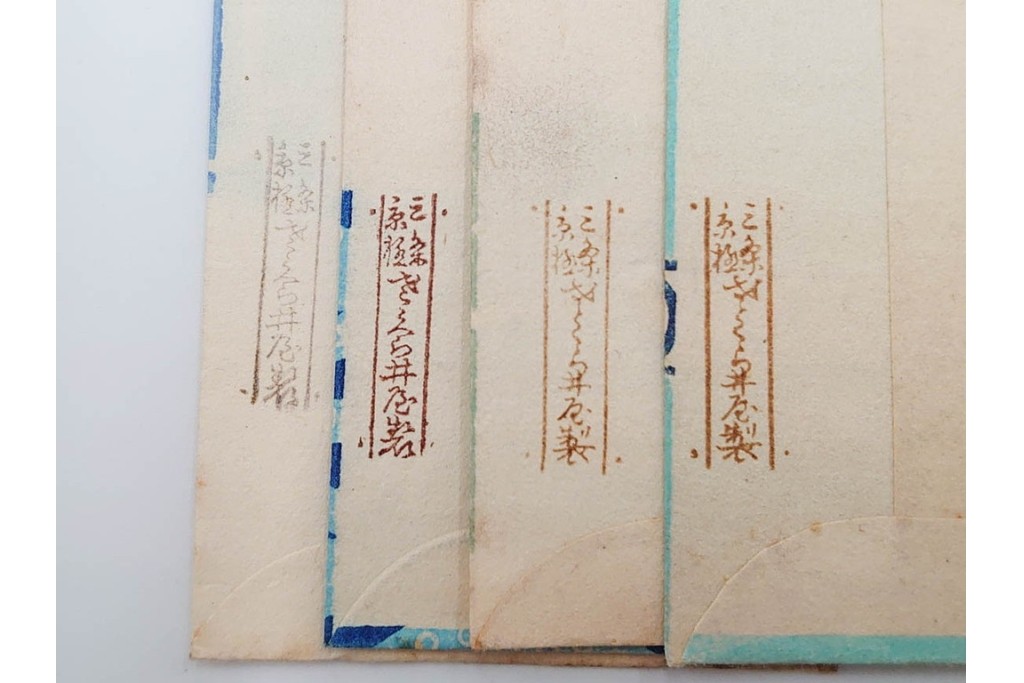 三條京極さくら井屋製
三條京極さくら井屋製
三條京極さくら井屋製
三條京極さくら井屋製